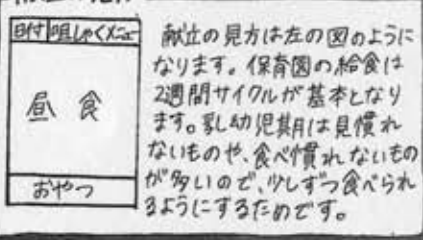 日付 咀しゃくメニュー
昼食
おやつ
献立の見方は左の図のように
なります。保育園の給食は
2週間サイクルが基本となり
ます。乳幼児期は見慣れ
ないものや、食べ慣れないもの
が多いので、少しずつ食べられ
るようにするためです。